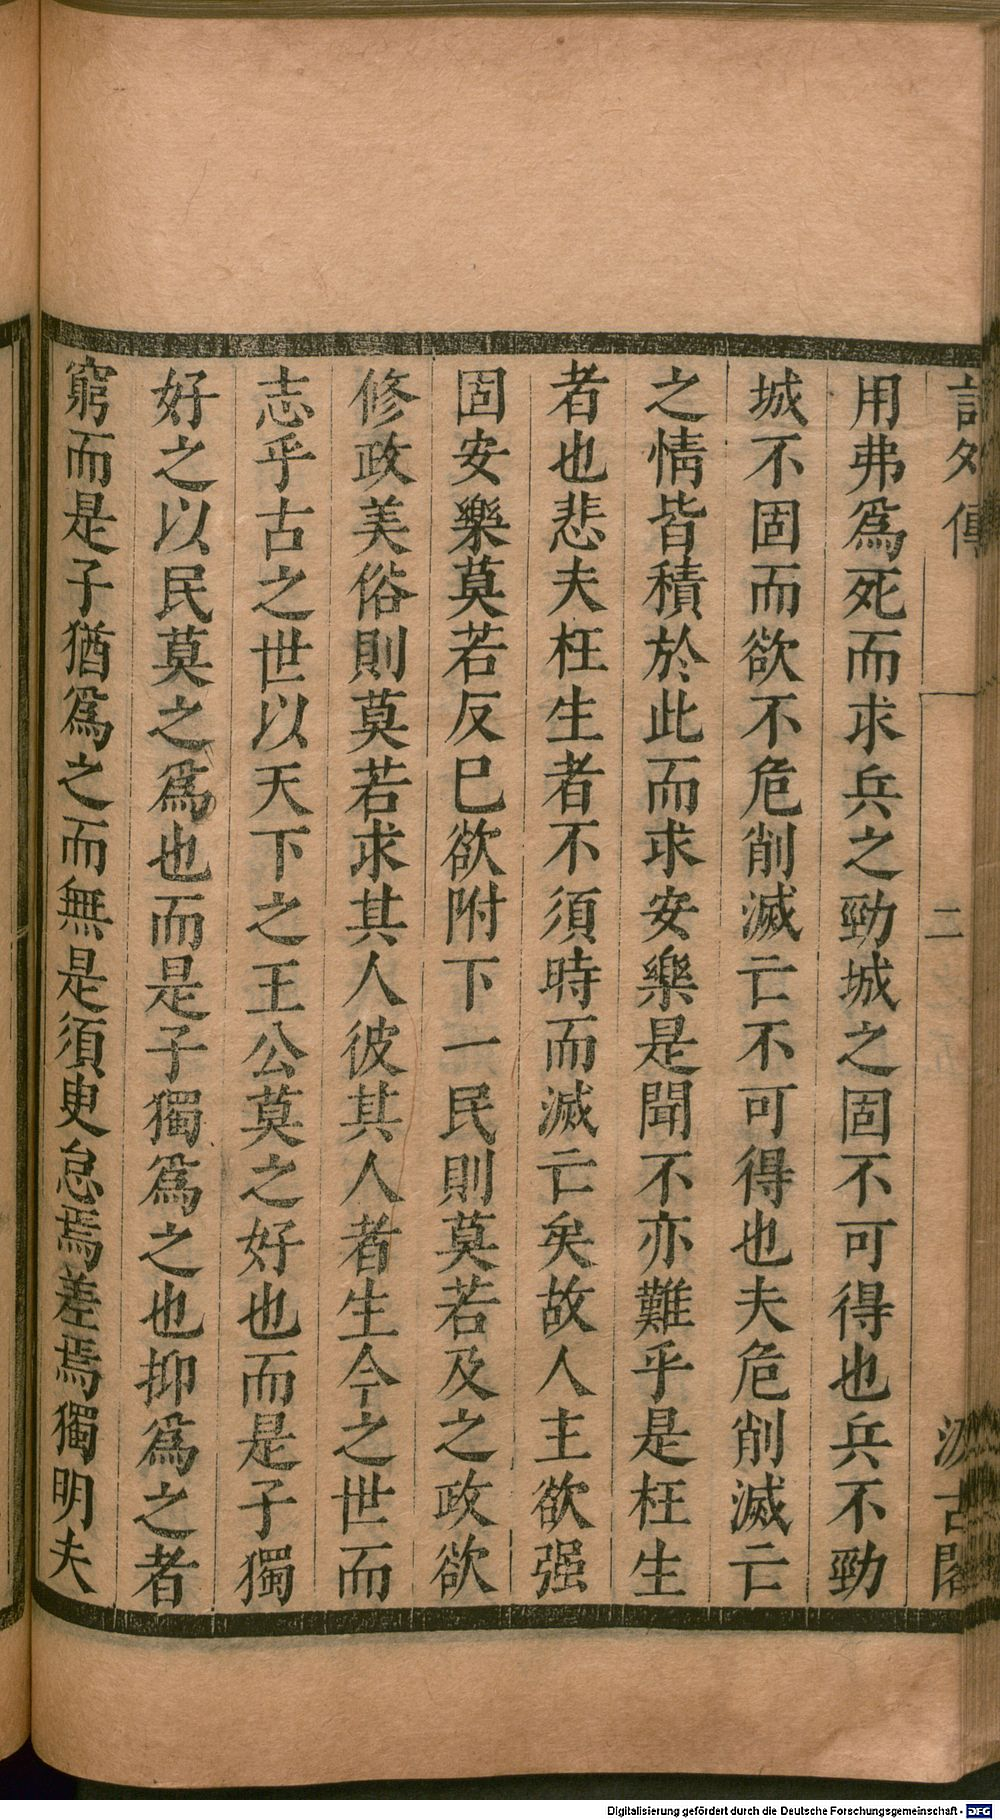 詩外傳
二
汲古閣
用弗爲死而求兵之勁城之固不可得也兵不勁
城不固而欲不危削滅亡不可得也夫危削滅亡
之情皆積於此而求安樂是聞不亦難乎是枉生
者也悲夫枉生者不須時而滅亡矣故人主欲强
固安樂莫若反巳欲附下一民則莫若及之政欲
修政美俗則莫若求其人彼其人者生今之世而
志乎古之世以天下之王公莫之好也而是子獨
好之以民莫之爲也而是子獨爲之也抑爲之者
窮而是子猶爲之而無是須臾怠焉差焉獨明夫
Digitalisierung gefördert durch die Deutsche Forschungsgemeinschaft - DFG